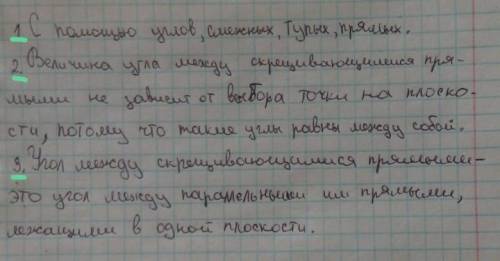 1. С помощью углов, смежных, тупых, прямых.
2. Величина угла между скрещивающимися пря-
мыми не зависит от выбора точки на плоско-
сти, потому что такие углы равны между собой.
3. Угол между скрещивающимися прямыми -
это угол между парамельными им прямыми,
лежащими в одной плоскости.